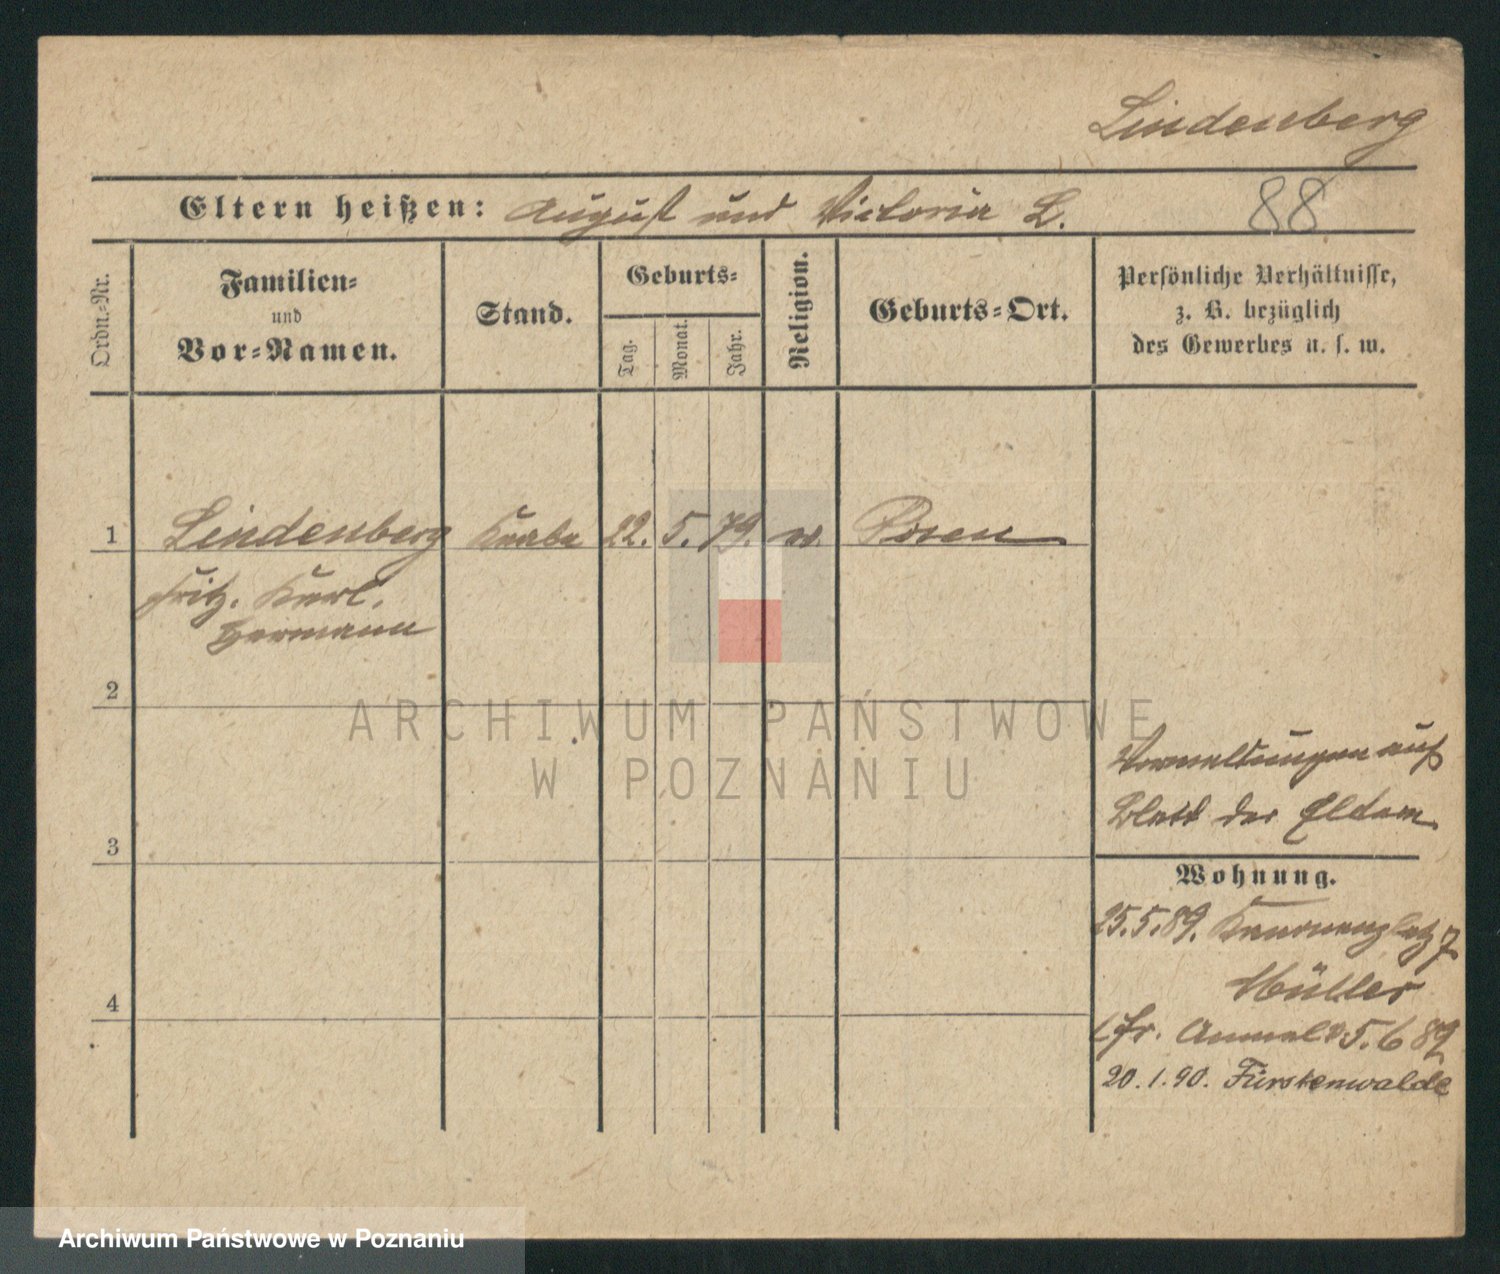 Lindenberg
Eltern heißen: August und Victoria L.
88
Ordn.-Nr.
Familien-
und
Vor-Namen.
Stand.
Geburts-
Tag.
Monat.
Jahr.
Religion.
Geburts-Ort.
Persönliche Verhältnisse,
z. B. bezüglich
des Gewerbes u. s. w.
1 Lindenberg Knabe 22. 5. 79. Posen
Fritz. Karl.
Hermann
2
3
4
Vormeldungen auf
Blatt der Eltern
Wohnung.
25.5.89. 7
Müller
fr. 5.6 89
20.1.90. Fürstenwalde
ARCHIWUM PAŃSTWOWE
W POZNANIU
Archiwum Państwowe w Poznaniu